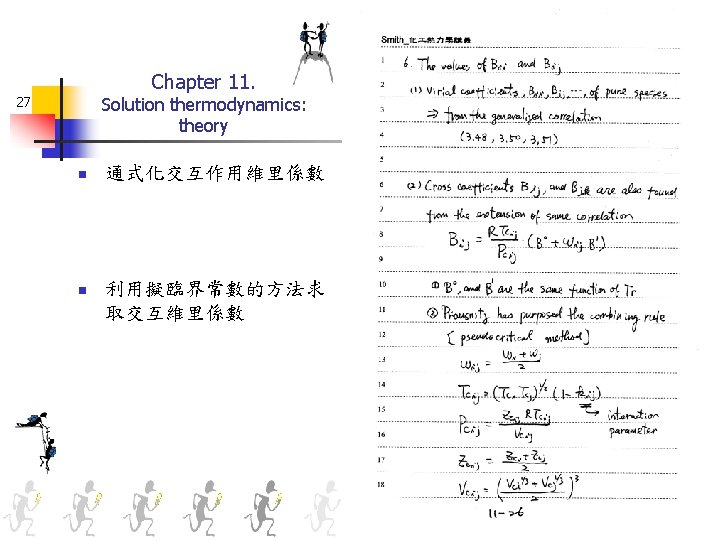 27
Chapter 11.
Solution thermodynamics:
theory
通式化交互作用維里係數
利用擬臨界常數的方法求
取交互維里係數
Smith_化工熱力學講義
1 6. The values of Bii and Bij
2 (1) Virial coefficients, Bii, Bjj, ..., of pure species
3 ⇒ from the generalized correlation
4 (3.48, 3.50, 3,51)
5
6 (2) Cross coefficients Bij, and Bik are also found
7 from the extension of same correlation
8 Bij = RTcij / Pcij (B° + ωij B')
9
10 ① B°, and B' are the same function of Tr
11 ② Prausnitz has purposed the combining rule
12 [pseudocritical method]
13 ωij = (ωi + ωj) / 2
14 Tcij = (Tci Tcj)^1/2 (1 - kij)
15 → interaction
Pcij = Zcij RTcij / Vcij
16 parameter
17 Zcij = (Zci + Zcj) / 2
18 Vcij = ((Vci^1/3 + Vcj^1/3) / 2)^3
11-26